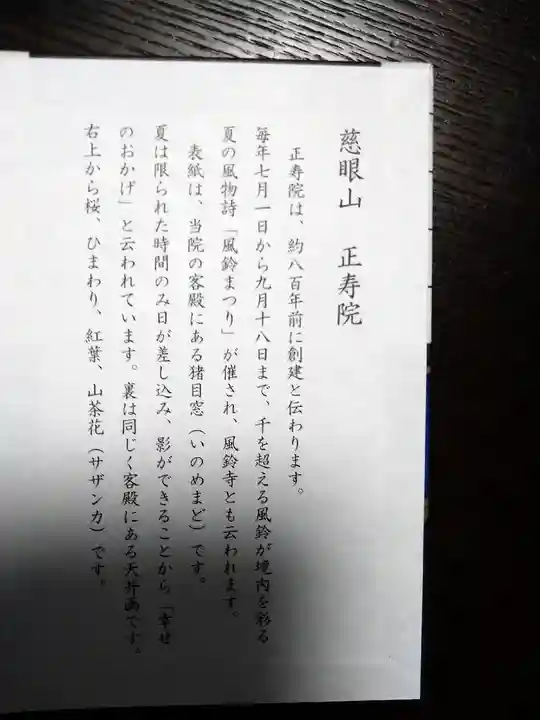 慈眼山　正寿院
正寿院は、約八百年前に創建と伝わります。
毎年七月一日から九月十八日まで、千を超える風鈴が境内を彩る
夏の風物詩「風鈴まつり」が催され、風鈴寺とも云われます。
表紙は、当院の客殿にある猪目窓（いのめまど）です。
夏は限られた時間のみ日が差し込み、影ができることから「幸せ
のおかげ」と云われています。裏は同じく客殿にある天井画です。
右上から桜、ひまわり、紅葉、山茶花（サザンカ）です。